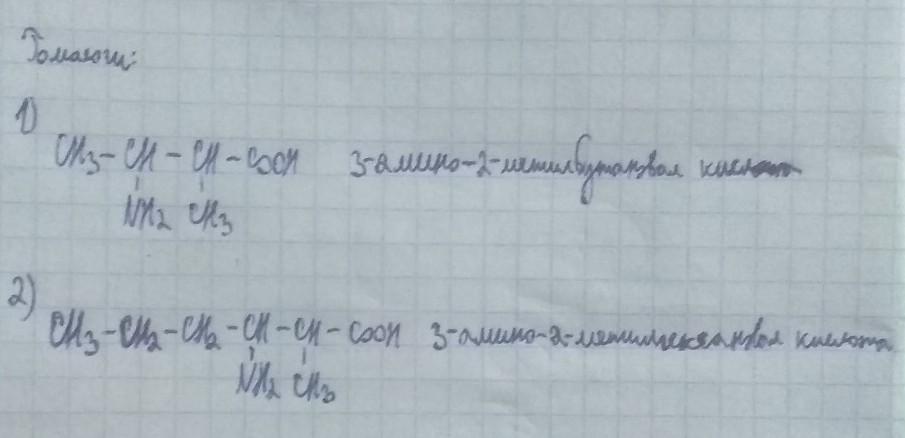 Гомологи:
1)
CH3-CH-CH-COOH 3-амино-2-метилбутановая кислота
NH2 CH3
2)
CH3-CH2-CH2-CH-CH-COOH 3-амино-2-метилгексановая кислота
NH2 CH3